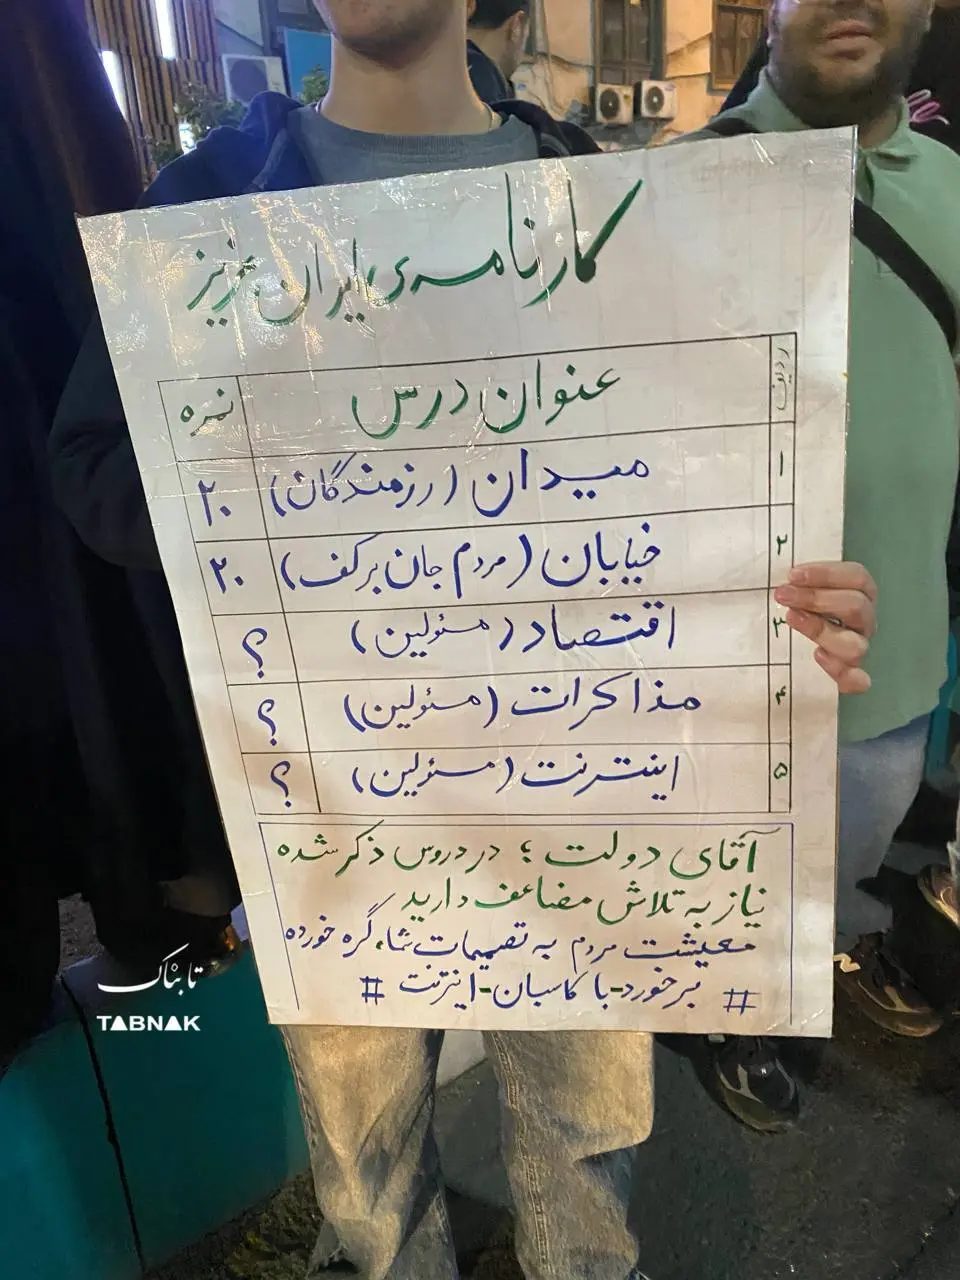 کارنامه‌ی ایران عزیز
ردیف عنوان درس نمره
۱ میدان (رزمندگان) ۲۰
۲ خیابان (مردم جان برکف) ۲۰
۳ اقتصاد (مسئولین) ؟
۴ مذاکرات (مسئولین) ؟
۵ اینترنت (مسئولین) ؟
آقای دولت ؛ در دروس ذکر شده
نیاز به تلاش مضاعف دارید
معیشت مردم به تصمیمات شما، گره خورده
# برخورد-با کاسبان-اینترنت #
تابناک
TABNAK